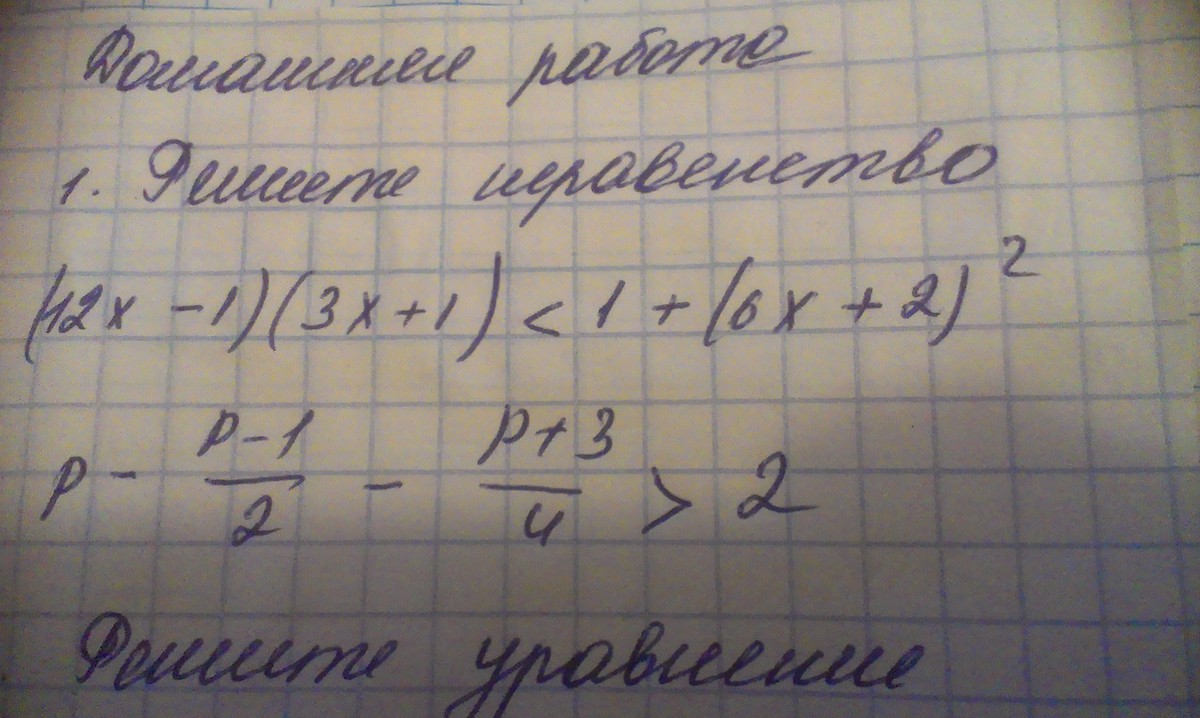 Домашнее работа
1. Решите неравенство
(12x - 1)(3x + 1) < 1 + (6x + 2)²
p - \frac{p-1}{2} - \frac{p+3}{4} > 2
Решите уравнение